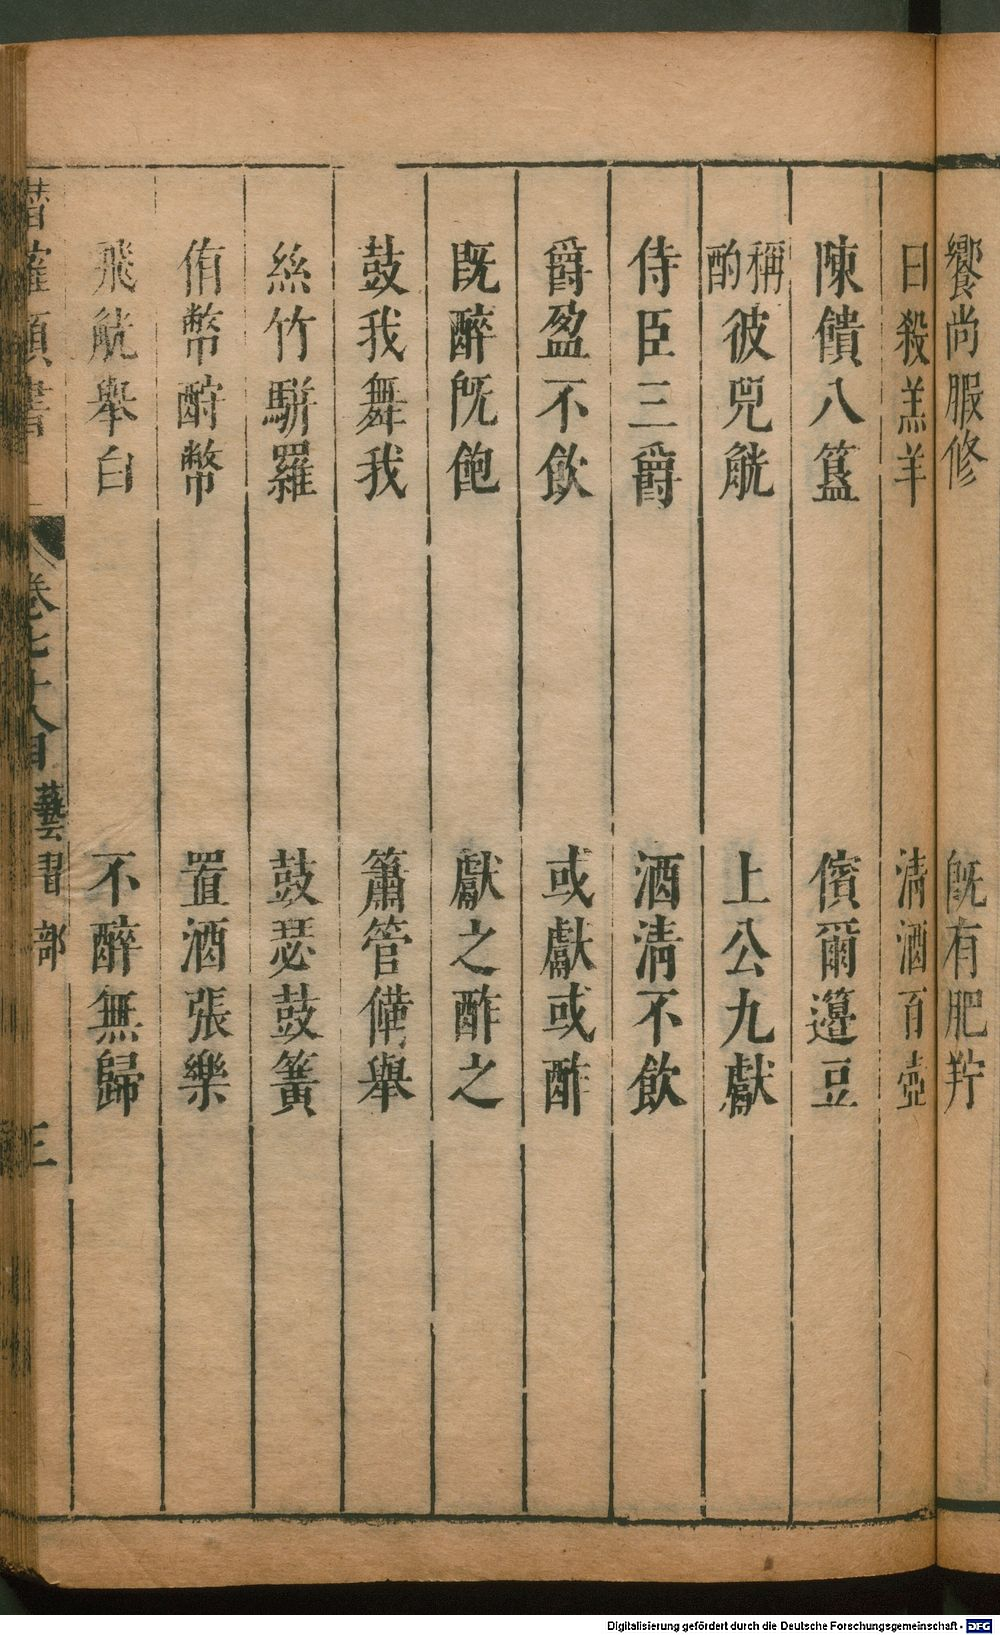 饗尚服修　既有肥羜
日殺羔羊　清酒百壺
陳饋八簋　儐爾籩豆
稱酌彼兕觥　上公九獻
侍臣三爵　酒清不飲
爵盈不飲　或獻或酢
既醉既飽　獻之酢之
鼓我舞我　簫管僃舉
絲竹駢羅　鼓瑟鼓簧
侑幣酧幣　置酒張樂
飛觥舉白　不醉無歸
卷七十八目　藝習部　三
Digitalisierung gefördert durch die Deutsche Forschungsgemeinschaft - DFG